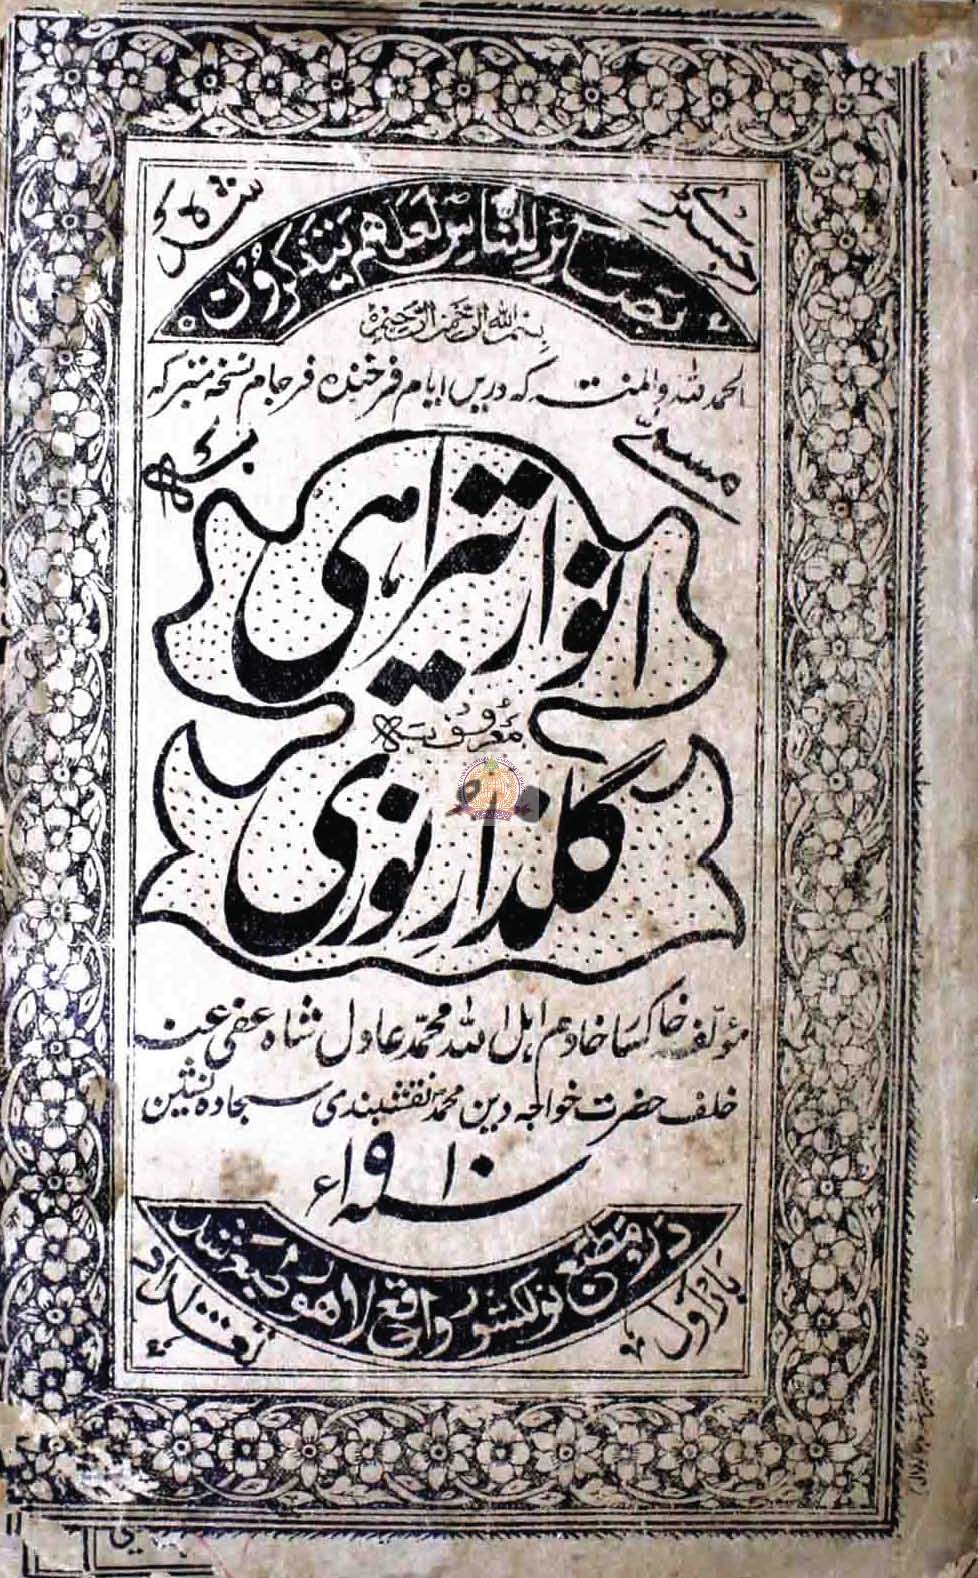 جسٹرڈ
شدہ
بصائر للناس لعلهم يتذكرون
بسم الله الرحمن الرحيم
الحمد للہ والمنت کہ دریں ایام فرخندہ فرجام نسخہ متبرکہ
مسمّے
بہ
انوار تیراہی
معروف بہ
گلزار نوری
مؤلف خاکسار خادم اہل اللہ محمد عادل شاہ عفی عنہ
خلف حضرت خواجہ دین محمد نقشبندی سجادہ نشین
سنہ ۱۹۱۰ء
در مطبع نولکشور واقع لاہور طبع شد
بار اول
تعداد